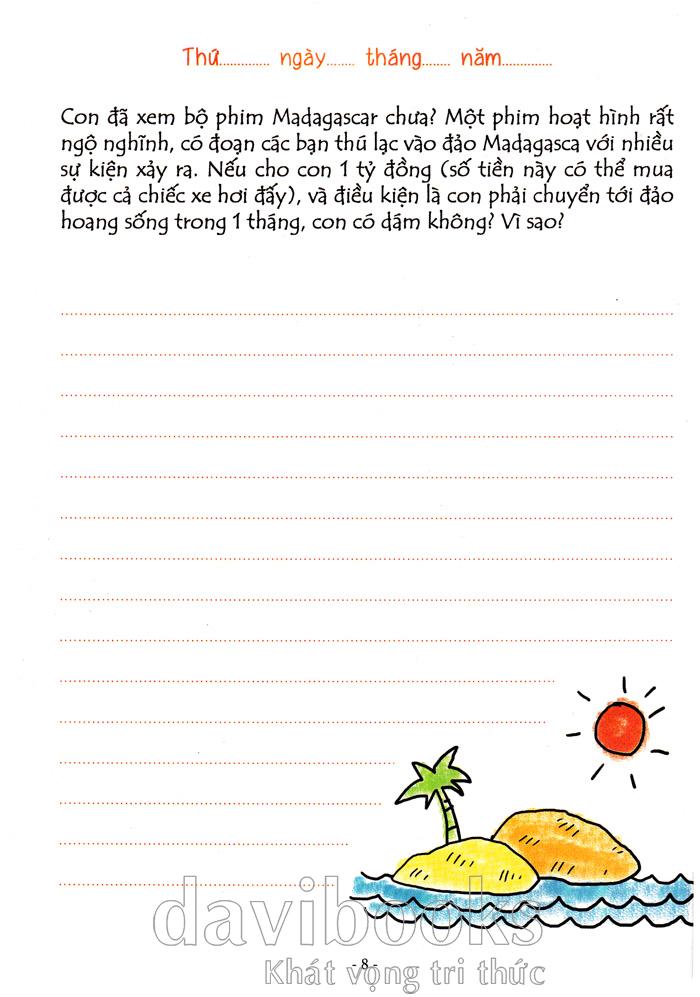 Thứ.............. ngày........ tháng........ năm..............
Con đã xem bộ phim Madagascar chưa? Một phim hoạt hình rất
ngộ nghĩnh, có đoạn các bạn thú lạc vào đảo Madagasca với nhiều
sự kiện xảy ra. Nếu cho con 1 tỷ đồng (số tiền này có thể mua
được cả chiếc xe hơi đấy), và điều kiện là con phải chuyển tới đảo
hoang sống trong 1 tháng, con có dám không? Vì sao?
davibooks
- 8 -
Khát vọng tri thức